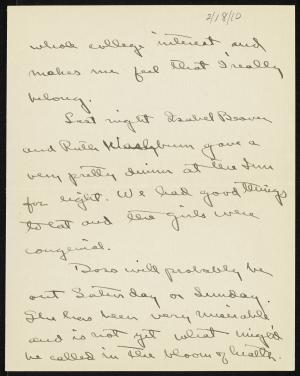 2/18/10
whole college interest and
makes me feel that I really
belong.
Last night Isabel Brown
and Ruth Washburn gave a
very pretty dinner at the Inn
for eight. We had good things
to eat and the girls were
congenial.
will probably be
out Saturday or Sunday.
She has been very miserable
and is not yet what might
be called in the bloom of health.